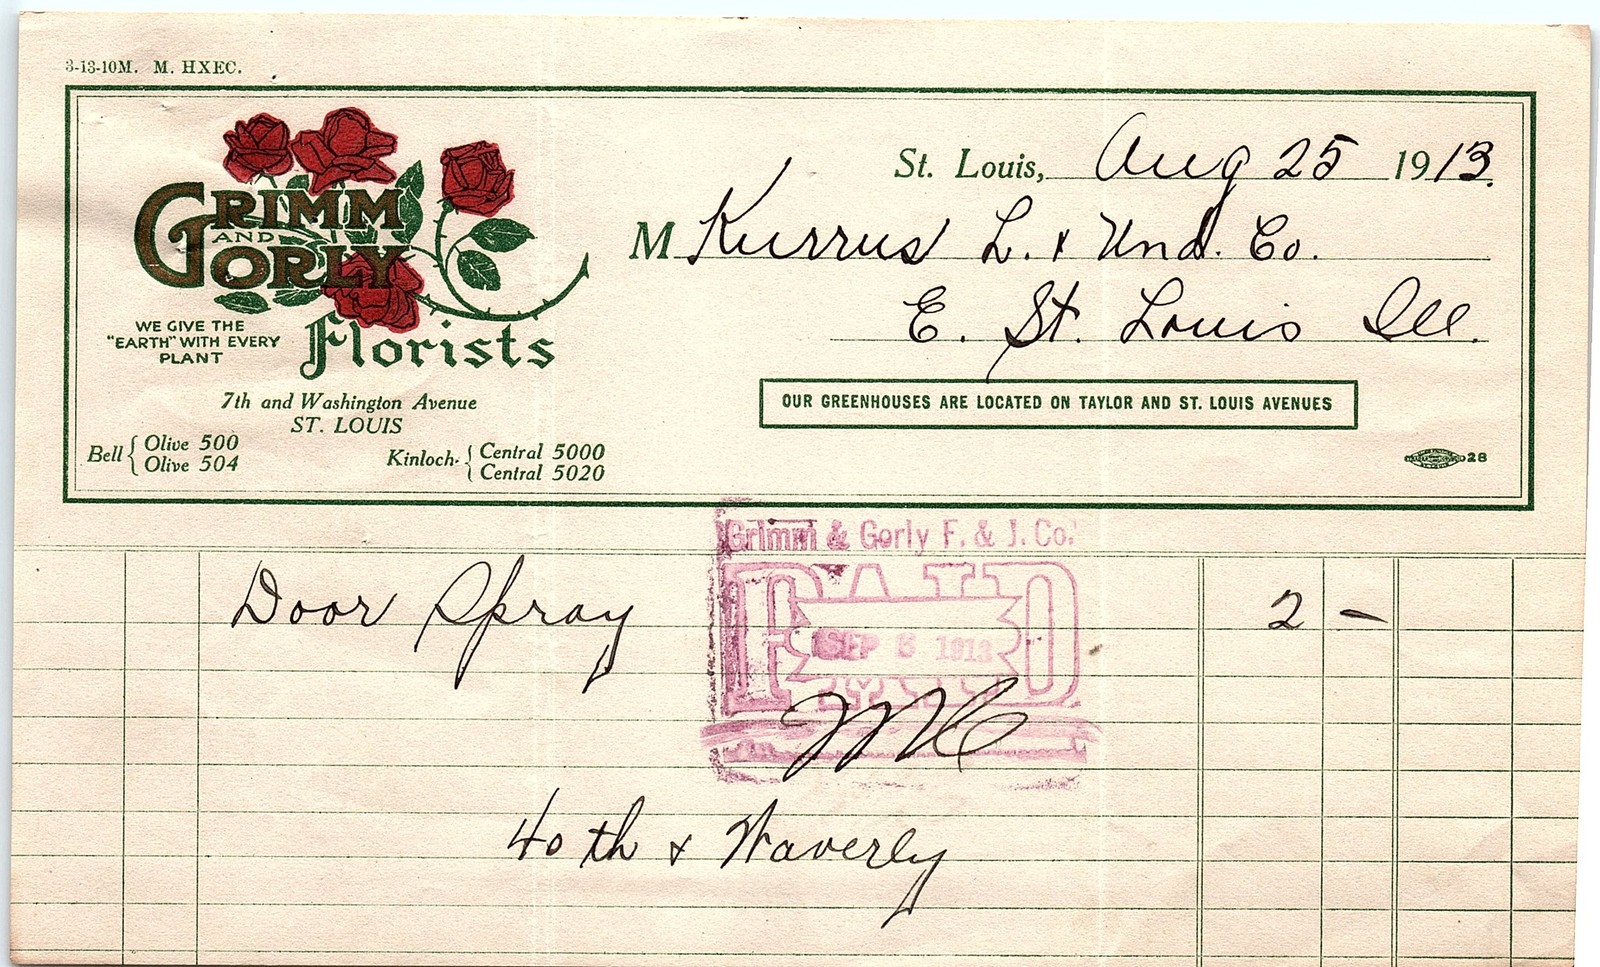 3-13-10M. M. HXEC.
GRIMM
AND
GORLY
Florists
WE GIVE THE
"EARTH" WITH EVERY
PLANT
7th and Washington Avenue
ST. LOUIS
Bell { Olive 500
Olive 504
Kinloch { Central 5000
Central 5020
St. Louis, Aug 25 1913.
M Kurrus L. & Und. Co.
E. St. Louis Ill.
OUR GREENHOUSES ARE LOCATED ON TAYLOR AND ST. LOUIS AVENUES
28
Grimm & Gorly F. & J. Co.
PAID
SEP 1913
Door Spray 2 –
40th & Waverly